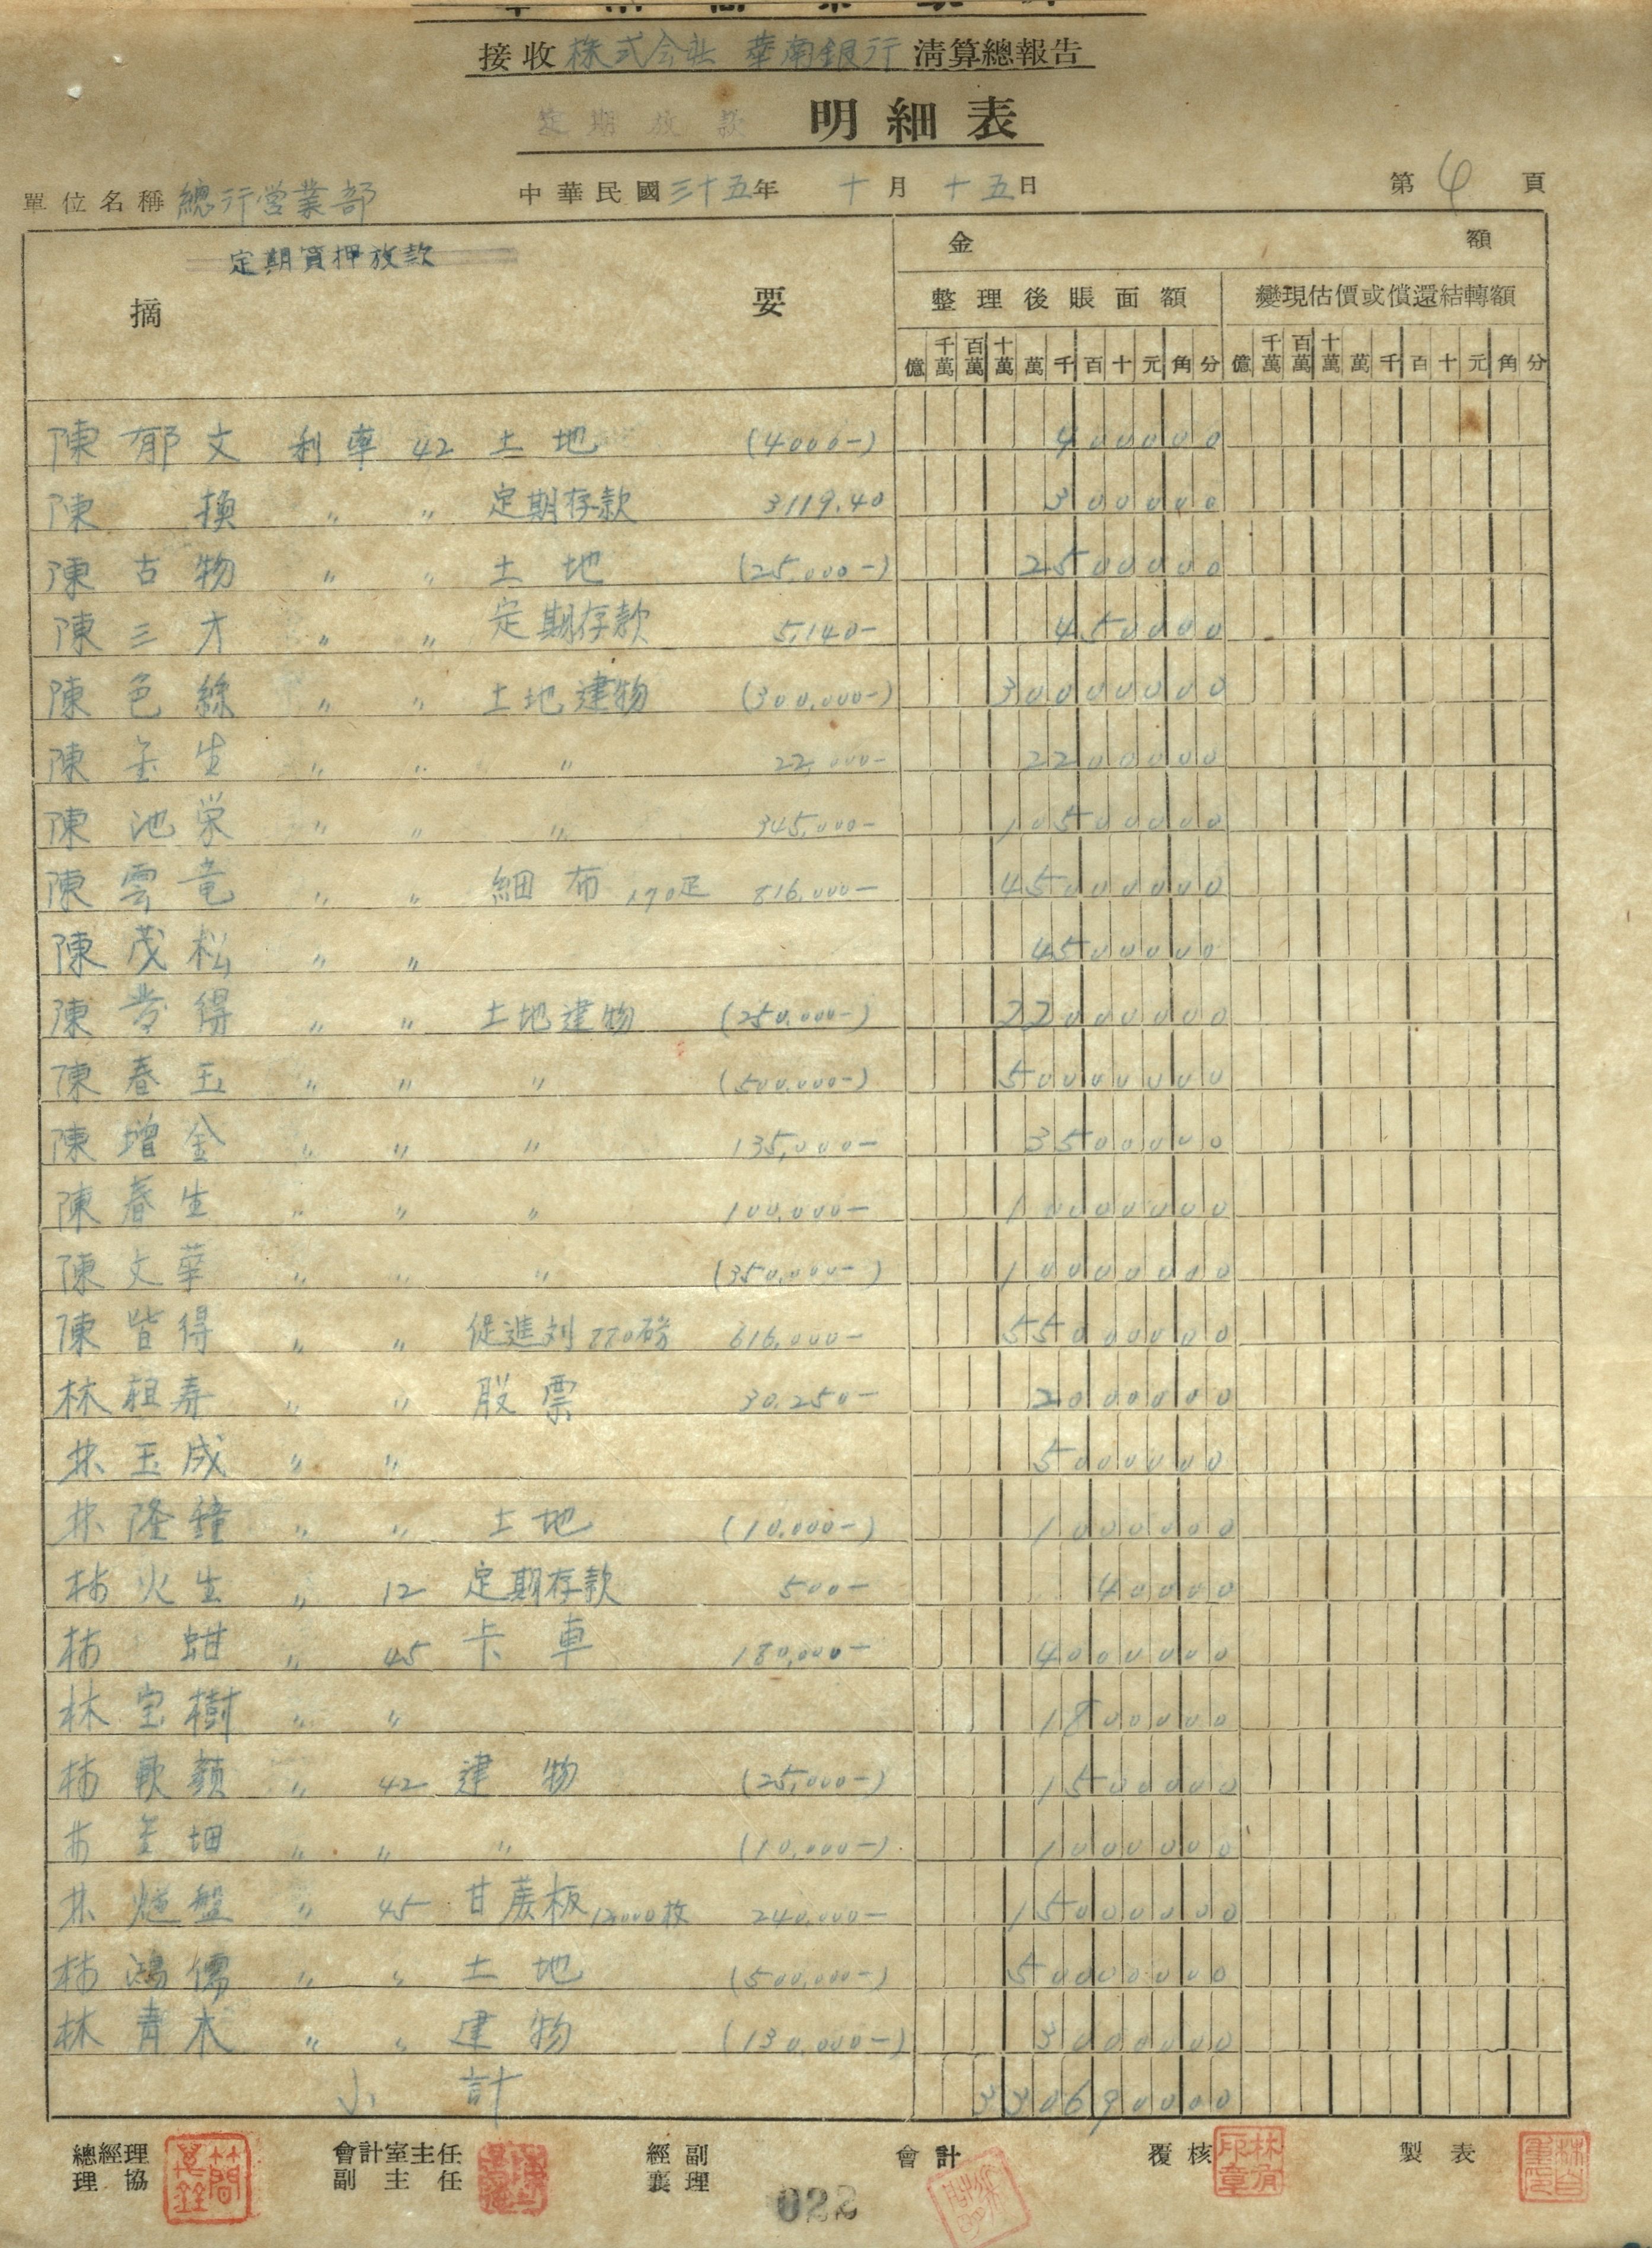 接收 株式会社 華南銀行 清算總報告
定期放款 明細表
單位名稱 總行営業部 中華民國三十五年 十月 十五日 第 4 頁
定期質押放款
摘 要 金 額
整理後賬面額 變現估價或償還結轉額
億 千萬 百萬 十萬 萬 千 百 十 元 角 分 億 千萬 百萬 十萬 萬 千 百 十 元 角 分
陳郁文 利率 42 土地 (4000-) 400000
陳換 〃 〃 定期存款 3119.40 300000
陳古物 〃 〃 土地 (25,000-) 2500000
陳三才 〃 〃 定期存款 5,140- 450000
陳色絲 〃 〃 土地建物 (300,000-) 30000000
陳金生 〃 〃 〃 22,000- 2200000
陳池栄 〃 〃 〃 345,000- 10500000
陳雲竜 〃 〃 細布 170疋 816,000- 45000000
陳茂松 〃 〃 4500000
陳 得 〃 〃 土地建物 (250,000-) 22000000
陳春玉 〃 〃 〃 (500,000-) 50000000
陳增金 〃 〃 〃 135,000- 3500000
陳春生 〃 〃 〃 100,000- 10000000
陳文華 〃 〃 〃 (350,000-) 10000000
陳皆得 〃 〃 促進剂 770磅 616,000- 55000000
林祖寿 〃 〃 股票 30,250- 2000000
林玉成 〃 〃 5000000
林隆鐘 〃 〃 土地 (10,000-) 1000000
林火生 〃 12 定期存款 500- 40000
林蚶 〃 45 卡車 180,000- 4000000
林宝樹 〃 〃 1800000
林軟類 〃 42 建物 (25,000-) 1500000
林金田 〃 〃 〃 (10,000-) 1000000
林 盤 〃 45 甘蔗板 12,000枚 240,000- 15000000
林鴻儒 〃 〃 土地 (500,000-) 50000000
林青木 〃 〃 建物 (130,000-) 3000000
小計 330690000
總經理 會計室主任 經副 會計 覆核 製表
理協 副主任 襄理
022